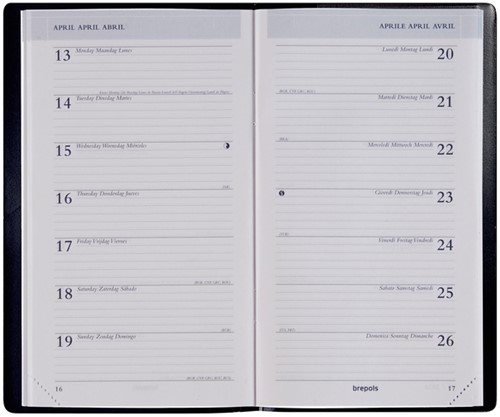 APRIL APRIL ABRIL
13 Monday Maandag Lunes
14 Tuesday Dinsdag Martes
15 Wednesday Woensdag Miércoles
16 Thursday Donderdag Jueves
17 Friday Vrijdag Viernes
18 Saturday Zaterdag Sábado
19 Sunday Zondag Domingo
16
APRILE APRIL AVRIL
Lunedì Montag Lundi 20
Martedì Dienstag Mardi 21
Mercoledì Mittwoch Mercredi 22
Giovedì Donnerstag Jeudi 23
Venerdì Freitag Vendredi 24
Sabato Samstag Samedi 25
Domenica Sonntag Dimanche 26
brepols
17